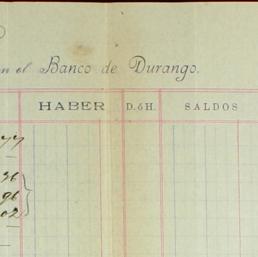 en el Banco de Durango.
HABER D. ó H. SALDOS
77
36
96
02